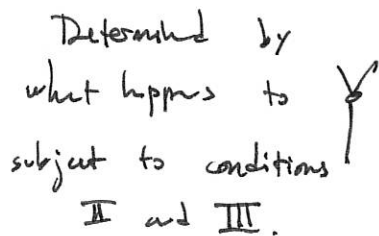 Determined by
what happens to
subject to conditions
II and III.